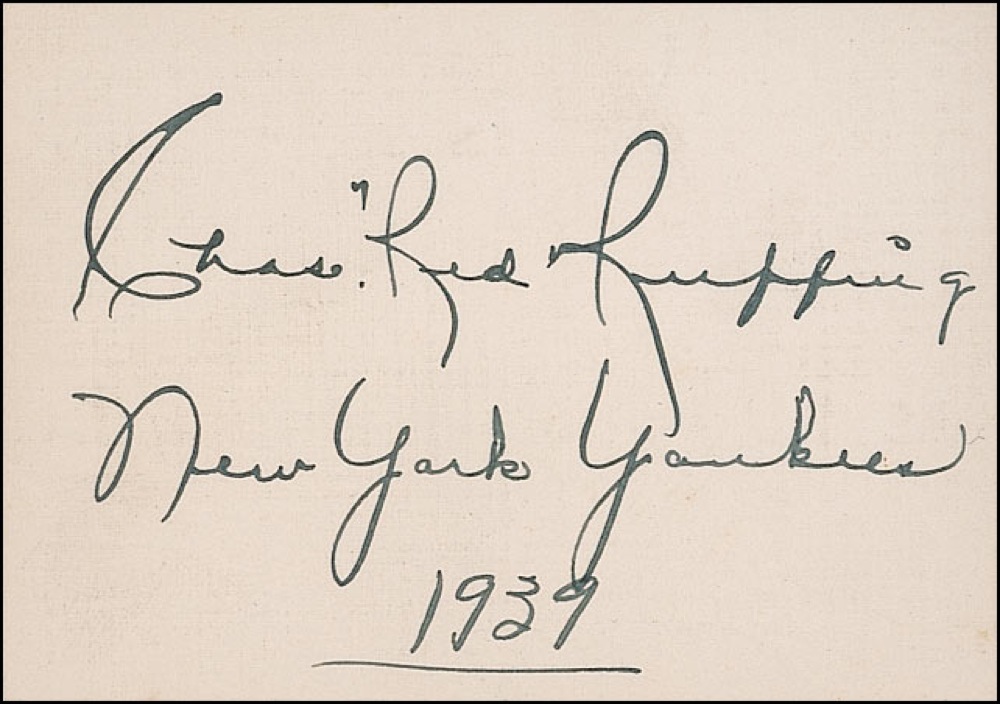 Chas. "Red" Ruffing
New York Yankees
1939